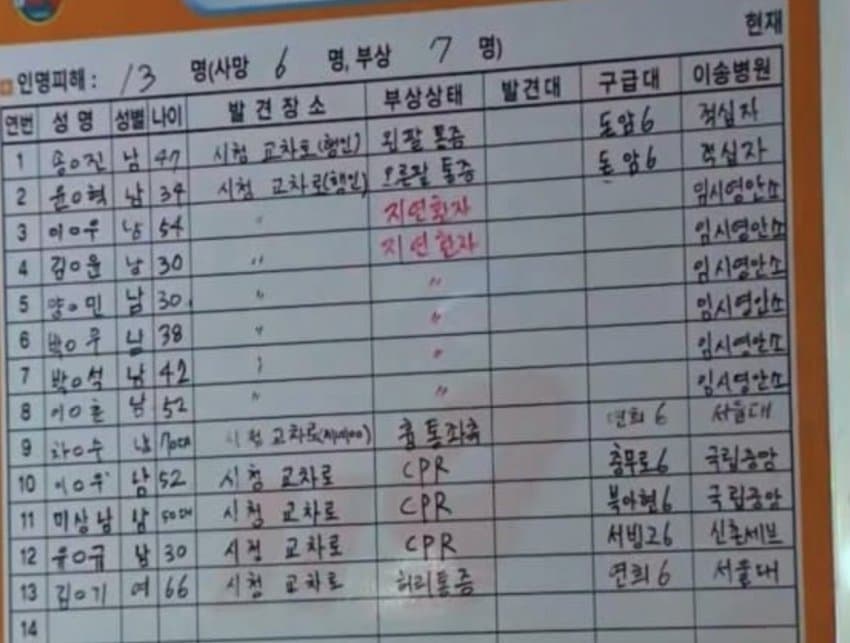 현재
인명피해 : 13 명(사망 6 명, 부상 7 명)
연번 성명 성별 나이 발견장소 부상상태 발견대 구급대 이송병원
1 송ㅇ진 남 47 시청 교차로(행인) 왼팔 통증 돈암6 적십자
2 윤ㅇ혁 남 34 시청 교차로(행인) 오른팔 통증 돈암6 적십자
3 이ㅇ우 남 54 〃 지연환자 임시영안소
4 김ㅇ윤 남 30 〃 지연환자 임시영안소
5 양ㅇ민 남 30. 〃 〃 임시영안소
6 박ㅇ우 남 38 〃 〃 임시영안소
7 박ㅇ석 남 42 〃 〃 임시영안소
8 이ㅇ훈 남 52 〃 〃 임시영안소
9 차ㅇ수 남 70대 시청 교차로 흉통좌측 연희6 서울대
10 이ㅇ우 남 52 시청 교차로 CPR 충무로6 국립중앙
11 미상남 남 50대 시청 교차로 CPR 북아현6 국립중앙
12 유ㅇ규 남 30 시청 교차로 CPR 서빙고6 신촌세브
13 김ㅇ기 여 66 시청 교차로 허리통증 연희6 서울대
14